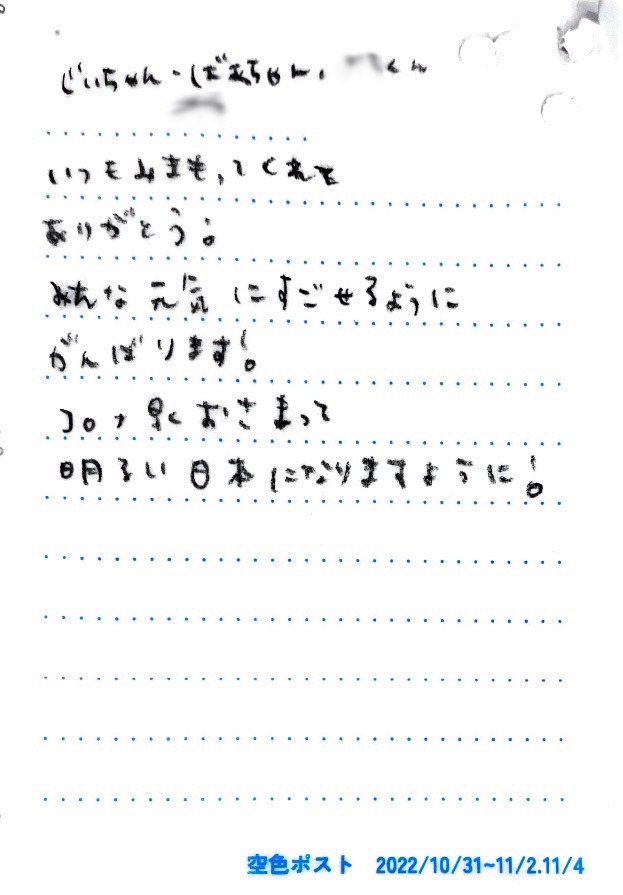 じいちゃん・ばあちゃん、くん
いつもみまもってくれて
ありがとう!
みんな元気にすごせるように
がんばります!
コロナ早くおさまって
明るい日本になりますように!
空色ポスト 2022/10/31~11/2.11/4